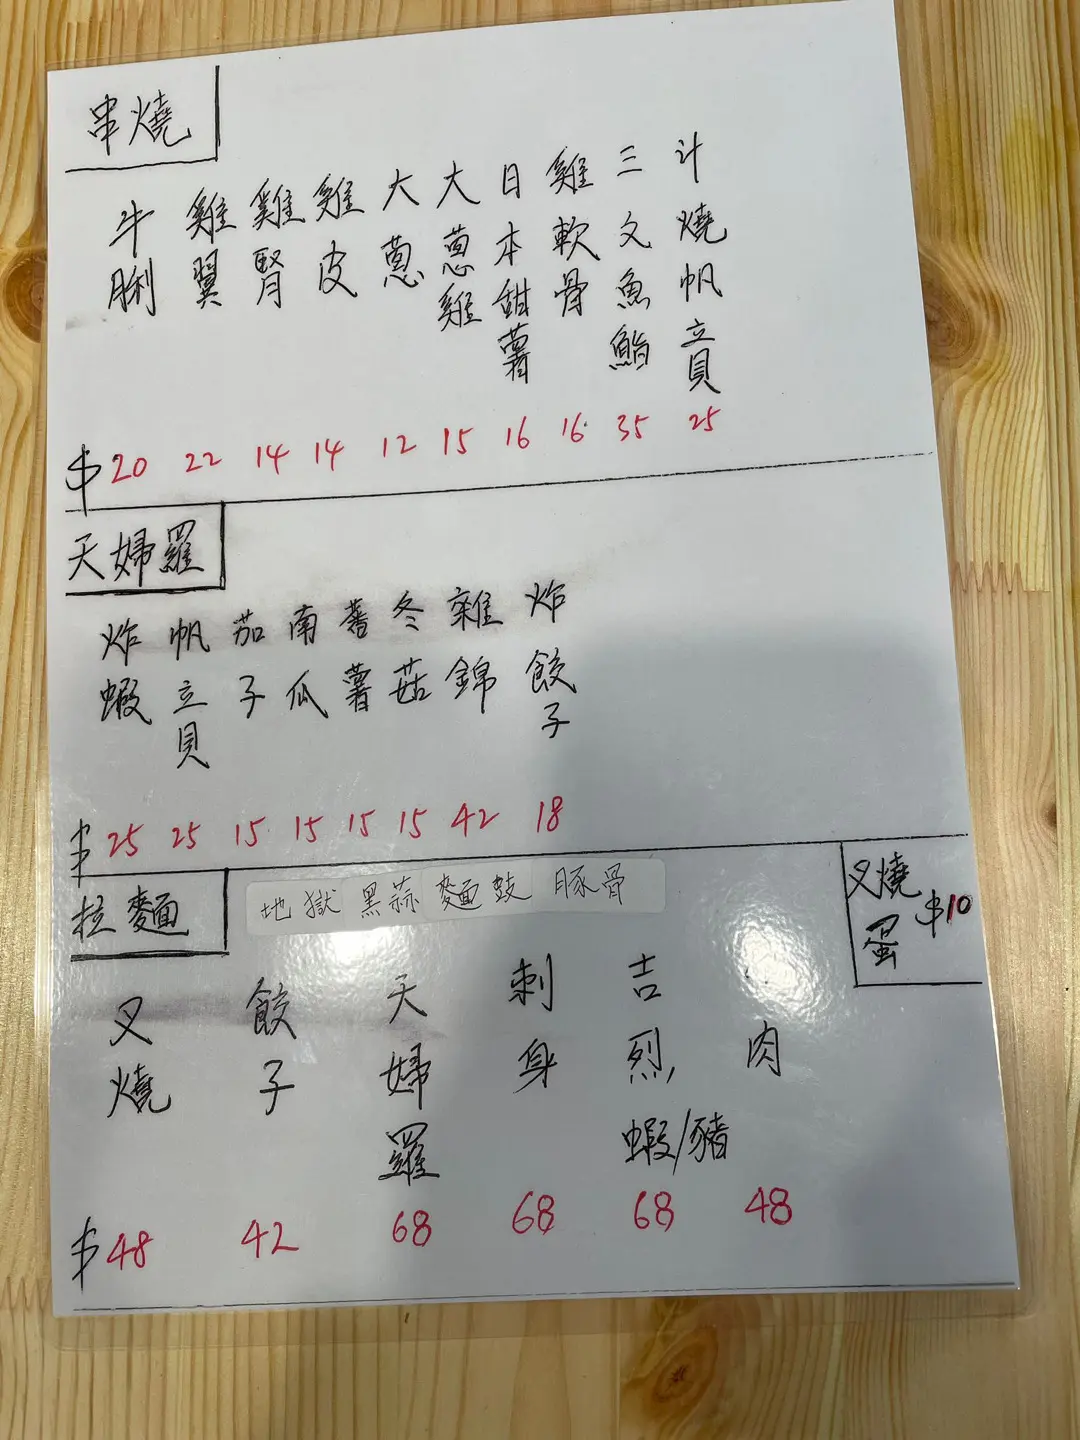 串燒
牛脷
雞翼
雞腎
雞皮
大蔥
大蔥雞
日本甜薯
雞軟骨
三文魚鮨
汁燒帆立貝
$ 20 22 14 14 12 15 16 16 35 25
天婦羅
炸蝦
帆立貝
茄子
南瓜
蕃薯
冬菇
雜錦
炸餃子
$ 25 25 15 15 15 15 42 18
拉麵
地獄 黑蒜 麵豉 豚骨
叉燒
蛋 $10
叉燒
餃子
天婦羅
刺身
吉烈
蝦/豬
肉
$ 48 42 68 68 68 48